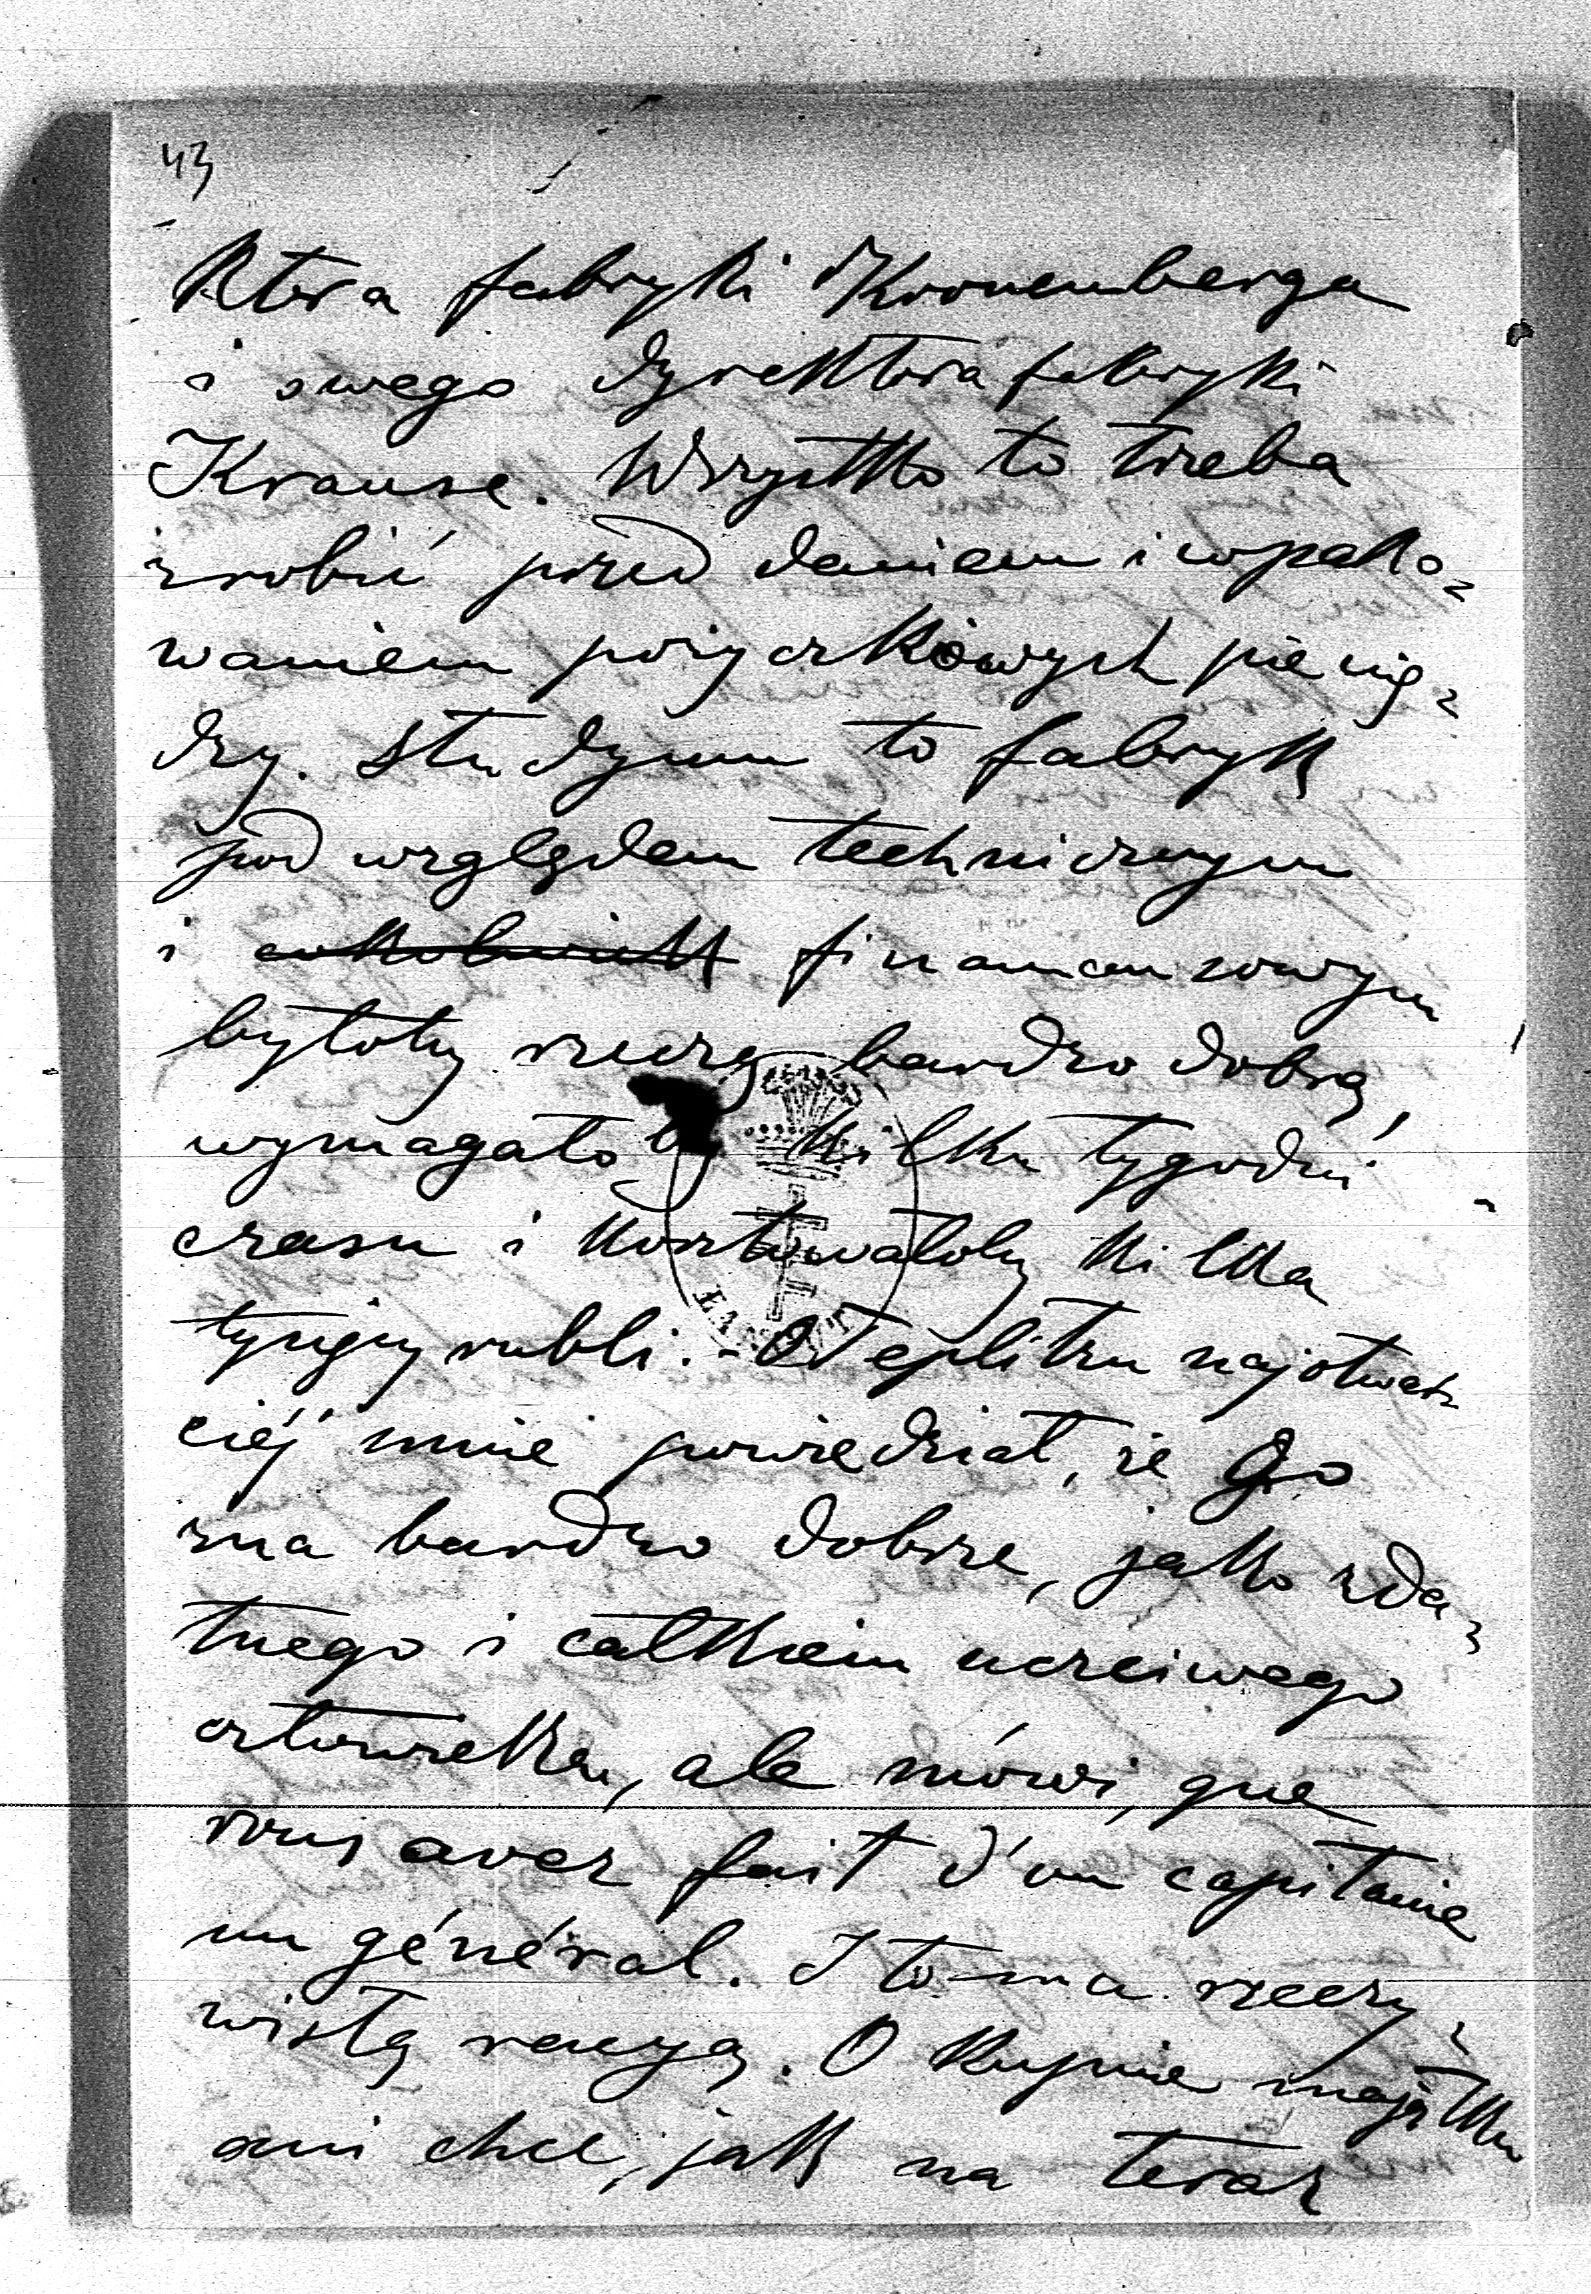 43
ktora fabryki Kronenberga
i swego dyrektora fabryki
Krause. Wszystko to trzeba
zrobić przed daniem i wpako-
waniem pożyczkowych pienię-
dzy. Studyum to fabryk
pod względem technicznym
i finansowym
byłoby rzeczą bardzo dobrą,
wymagałoby kilku tygodni
czasu i kosztowałoby kilka
tysięcy rubli. - O Teplitzu najotwar-
ciéj mnie powiedział, że Go
zna bardzo dobrze, jako zda-
tnego i całkiem uczciwego
człowieka, ale mówi, que
vous avez fait d'un capitaine
un général. I to ma rzeczy-
wistą racyą. O kupnie majątku
ani chce, jak na teraz
ŁAŃCUT